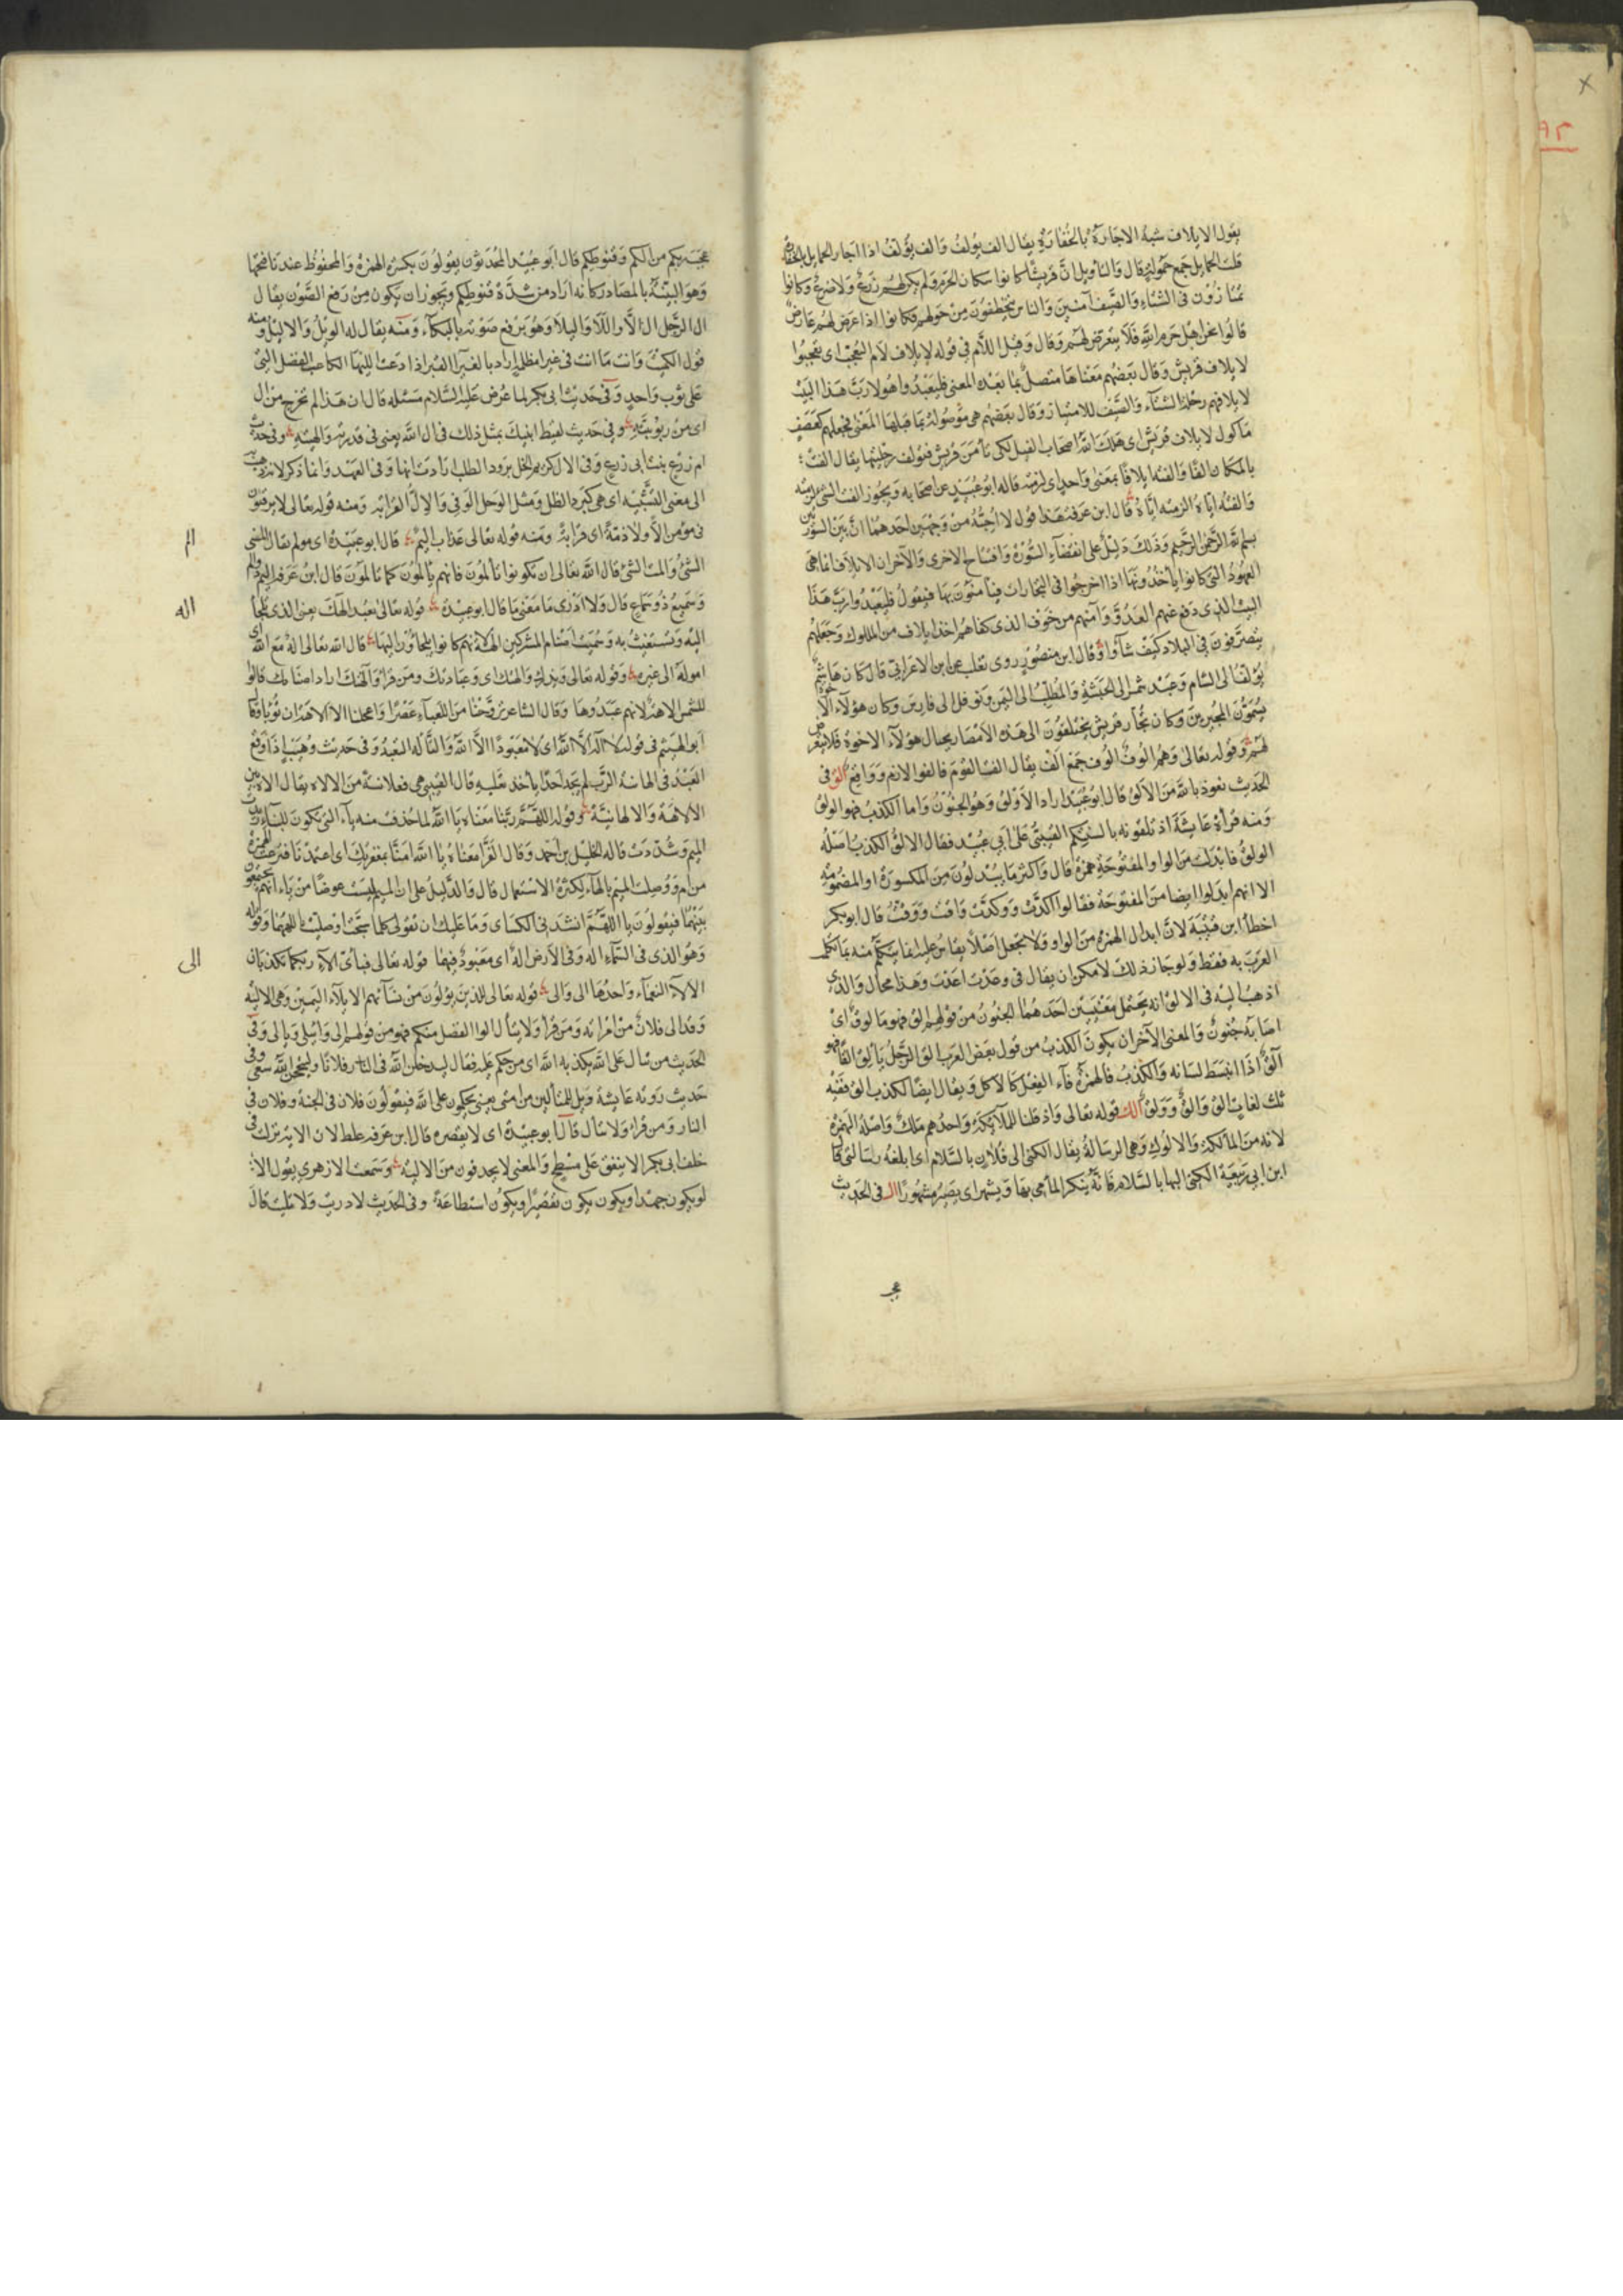 ٩٢
يقول الايلاف شبه الاجارة بالخفارة يقال الف يؤلف والف يؤلف اذا اجار الحمايل بالخفارة
قلت الحمايل جمع حمولة قال والتأويل ان قريشا كانوا سكان الحرم ولم يكن لهم زرع ولا ضرع وكانوا
يمتازون في الشتاء والصيف آمنين والناس يتخطفون من حولهم فكانوا اذا عرض لهم عارض
قالوا نحن اهل حرم الله فلا يتعرض لهم وقال وقيل اللام في قوله لايلاف لام التعجب اى تعجبوا
لايلاف قريش وقال بعضهم معناها متصل بما بعد المعنى فليعبدوا هولا رب هذا البيت
لايلافهم رحلة الشتاء والصيف للامتياز وقال بعضهم هى موصولة بما قبلها المعنى فجعلهم كعصف
مأكول لايلاف قريش اى هلك الله اصحاب الفيل لكى تأمن قريش فتؤلف رحلتيها يقال الفت
بالمكان الفا والفته ايلافا بمعنى واحد اى لزمته قاله ابو عبيد عن اصحابه ويجوز الفت الشئ لزمته
والفته اياه الزمته اياه قال ابن عرفة هذا قول لا احبه من وجهين احدهما ان بين السورتين
بسم الله الرحمن الرحيم وذلك دليل على انقضاء السورة وافتتاح الاخرى والآخر ان الايلاف انما هى
العهود التى كانوا يأخذونها اذا خرجوا في التجارات فيأمنون بها فيقول فليعبدوا رب هذا
البيت الذى دفع عنهم العدو وآمنهم من خوف الذى كفاهم اخذ ايلاف من الملوك وجعلهم
يتصرفون في البلاد كيف شاؤا وقال ابن منصور روى ثعلب عن ابن الاعرابى قال كان هاشم
يؤلف الى الشام وعبد شمس الى الحبشة والمطلب الى اليمن ونوفل الى فارس وكان هؤلاء الاخوة
يسمون المجيرين وكان تجار قريش يختلفون الى هذه الامصار بحبال هؤلاء الاخوة فلا يتعرض
لهم وقوله تعالى وهم الوف الوف جمع الف يقال الفت القوم فالفوا لازم وواقع الق في
الحديث نعوذ بالله من الالق قال ابو عبيد اراد الاولق وهو الجنون واما الكذب فهو الولق
ومنه قرأة عايشة اذ تلقونه بالسنتكم القتبى على ابي عبيد فقال الالق الكذب اصله
الولق فابدلت من الواو المفتوحة همزة قال واكثر ما يبدلون من المكسورة او المضمومة
الا انهم ابدلوا ايضا من المفتوحة فقالوا اكدت ووكدت واقت ووقت قال ابو بكر
اخطأ ابن قتيبة لان ابدال الهمزة من الواو ولا تجعل اصلا يقاس عليه انما يتكلم منه بما تكلم
العرب به فقط ولو جاز ذلك لامكن ان يقال في وعدت اعدت وهذا محال والذى
اذهب اليه في الالق انه يحتمل معنيين احدهما الجنون من قولهم الق فهو مألوق اى
اصابه جنون والمعنى الآخر ان يكون الكذب من قول بعض العرب الق الرجل يألق القا فهو
آلق اذا انبسط لسانه والكذب فالهمزة فاء الفعل كالاكل ويقال ايضا للكذب الق ففيه
ثلث لغات الق والق وولق الك قوله تعالى واذ قلنا للملائكة واحدهم ملك واصله الهمزة
لانه من المألكة والالوك وهى الرسالة يقال الكنى الى فلان بالسلام اى ابلغه رسالتى قال
ابن ابى ربيعة الكنى اليها بالسلام فانه ينكر المامى بها ويشهر اى يصير مشهورا الـ في الحديث
عجـ
عجب ربكم من الكم وقنوطكم قال ابو عبيد المحدثون يقولون بكسر الهمزة والمحفوظ عندنا فتحها
وهو اشبه بالمصادر كانه اراد من شدة قنوطكم ويجوز ان يكون من رفع الصوت يقال
ال الرجل ال الا واللا واليلا وهو يرفع صوته بالبكاء ومنه يقال له الويل والاليل ومنه
قول الكميت وانت ما انت في غبراء مظلمة اذا دعت الليها الكاعب الفضل التى
على ثوب واحد وفى حديث ابى بكر لما عرض عليه كلام مسيلمه قال ان هذا لم يخرج من ال
اى من ربوبية وفى حديث لقيط انبئك بمثل ذلك في ال الله يعنى في قدرته والهيته وفى حديث
ام زرع بنت ابى زرع وفى الال كريم الخل برود الظل ارادت انها وفى العهد وانما ذكر لانه ذهب
الى معنى التشبيه اى هى كبرد الظل ومثل الرجل الوفى والال القرابة ومنه قوله تعالى لا يرقبون
فى مؤمن الا ولا ذمة اى قرابة ومنه قوله تعالى عذاب اليم قال ابو عبيدة اى مولم يقال المنى
الم
الشئ والمت الشئ قال الله تعالى ان تكونوا تألمون فانهم يألمون كما تألمون قال ابن عرفة اليم ذو الم
وسميع ذو سماع قال ولا ادرى ما معنى ما قال ابو عبيدة قوله تعالى نعبد الهك يعنى الذى تلجأ
اله
اليه وتستغيث به وسميت اصنام المشركين آلهة لانهم كانوا يلجاؤن اليها قال الله تعالى اله مع الله
اموله الى غيره وقوله تعالى ويذرك والهتك اى وعبادتك ومن قرأ وآلهتك اراد اصنامك قالوا
للشمس الاهة لانهم عبدوها وقال الشاعر تروحنا من اللعباء عصرا واعجلنا الالاهة ان تؤبا وقال
ابو الهيثم في قوله لا اله الا الله اى لا معبود الا الله والتأله التعبد وفى حديث وهيب اذا وقع
العبد في الهانية الرب لم يجد احدا يأخذ بقلبه قال القتيبى هى فعلانية من الاله يقال اله بين
الالاهة والالهانية وقوله اللهم ربنا معناه يا الله لما حذف منه ياء التى تكون للنداء زيدت
الميم وشددت قاله الخليل بن احمد وقال الفرا معناه يا الله امنا بمغفرتك اى اعتمدنا فتركت الهمزة
من ام ووصلت الميم بالهاء لكثرة الاستعمال قال والدليل على ان الميم ليست عوضا من ياء انهم يجمعون
بينهما فيقولون يا اللهم انشد في الكسائى وما عليك ان تقولى كلما سبحت او صليت يا اللهم وقوله
وهو الذى فى السماء اله وفى الارض اله اى معبود فيهما قوله تعالى فبأى آلاء ربكما تكذبان
الى
الآلاء النعماء واحدها الى والى قوله تعالى للذين يؤلون من نسائهم الايلاء اليمين وهى الاليه
وقد الى فلان من امرأته ومن قرأ ولا يتأل الوا الفضل منكم فهو من قولهم الى وائتلى وتألى وفى
الحديث من يتأل على الله يكذبه الله اى من حكم عليه فقال ليدخلن الله فى النار فلانا ولينجحن الله سعى وفى
حديث روته عايشة ويل للمتألين من امتى يعنى يحكمون على الله فيقولون فلان فى الجنة وفلان فى
النار ومن قرأ ولا يتأل قال ابو عبيدة اى لا يقصر قال ابن عرفة غلط لان الاية نزلت فى
حلف ابى بكر الا ينفق على مسطح والمعنى لا يحلفون من الالية وسمعت الازهرى يقول الالو
يكون جهدا ويكون تقصيرا ويكون استطاعة وفى الحديث لا دريت ولا تليت قال